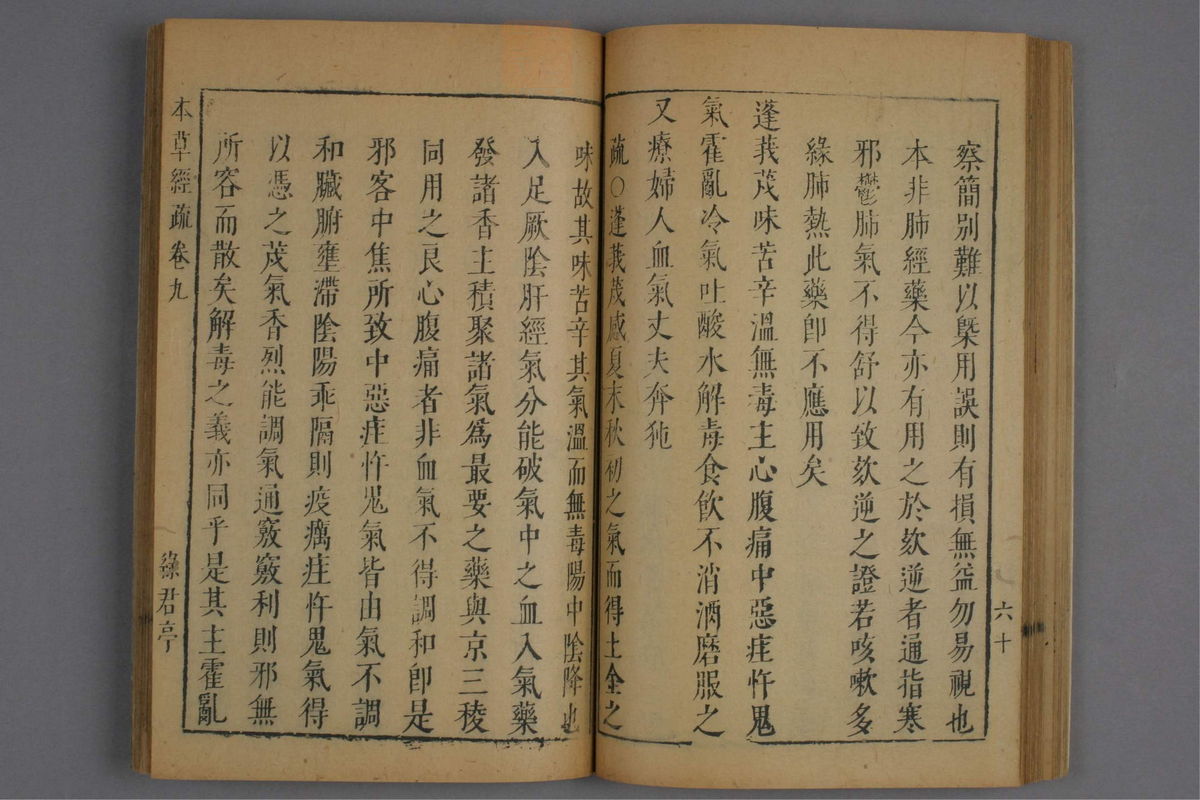 六十
察簡別難以槩用誤則有損無益勿易視也
本非肺經藥今亦有用之於欬逆者通指寒
邪鬱肺氣不得舒以致欬逆之證若咳嗽多
緣肺熱此藥卽不應用矣
蓬莪茂味苦辛溫無毒主心腹痛中惡疰忤鬼
氣霍亂冷氣吐酸水解毒食飮不消酒磨服之
又療婦人血氣丈夫奔㹠
疏○蓬莪茂感夏末秋初之氣而得土金之
味故其味苦辛其氣溫而無毒陽中陰降也
入足厥陰肝經氣分能破氣中之血入氣藥
發諸香主積聚諸氣爲最要之藥與京三稜
同用之良心腹痛者非血氣不得調和卽是
邪客中焦所致中惡疰忤鬼氣皆由氣不調
和臟腑壅滯陰陽乖隔則疫癘疰忤鬼氣得
以憑之茂氣香烈能調氣通竅竅利則邪無
所容而散矣解毒之義亦同乎是其主霍亂
本草經疏 卷九
綠君亭